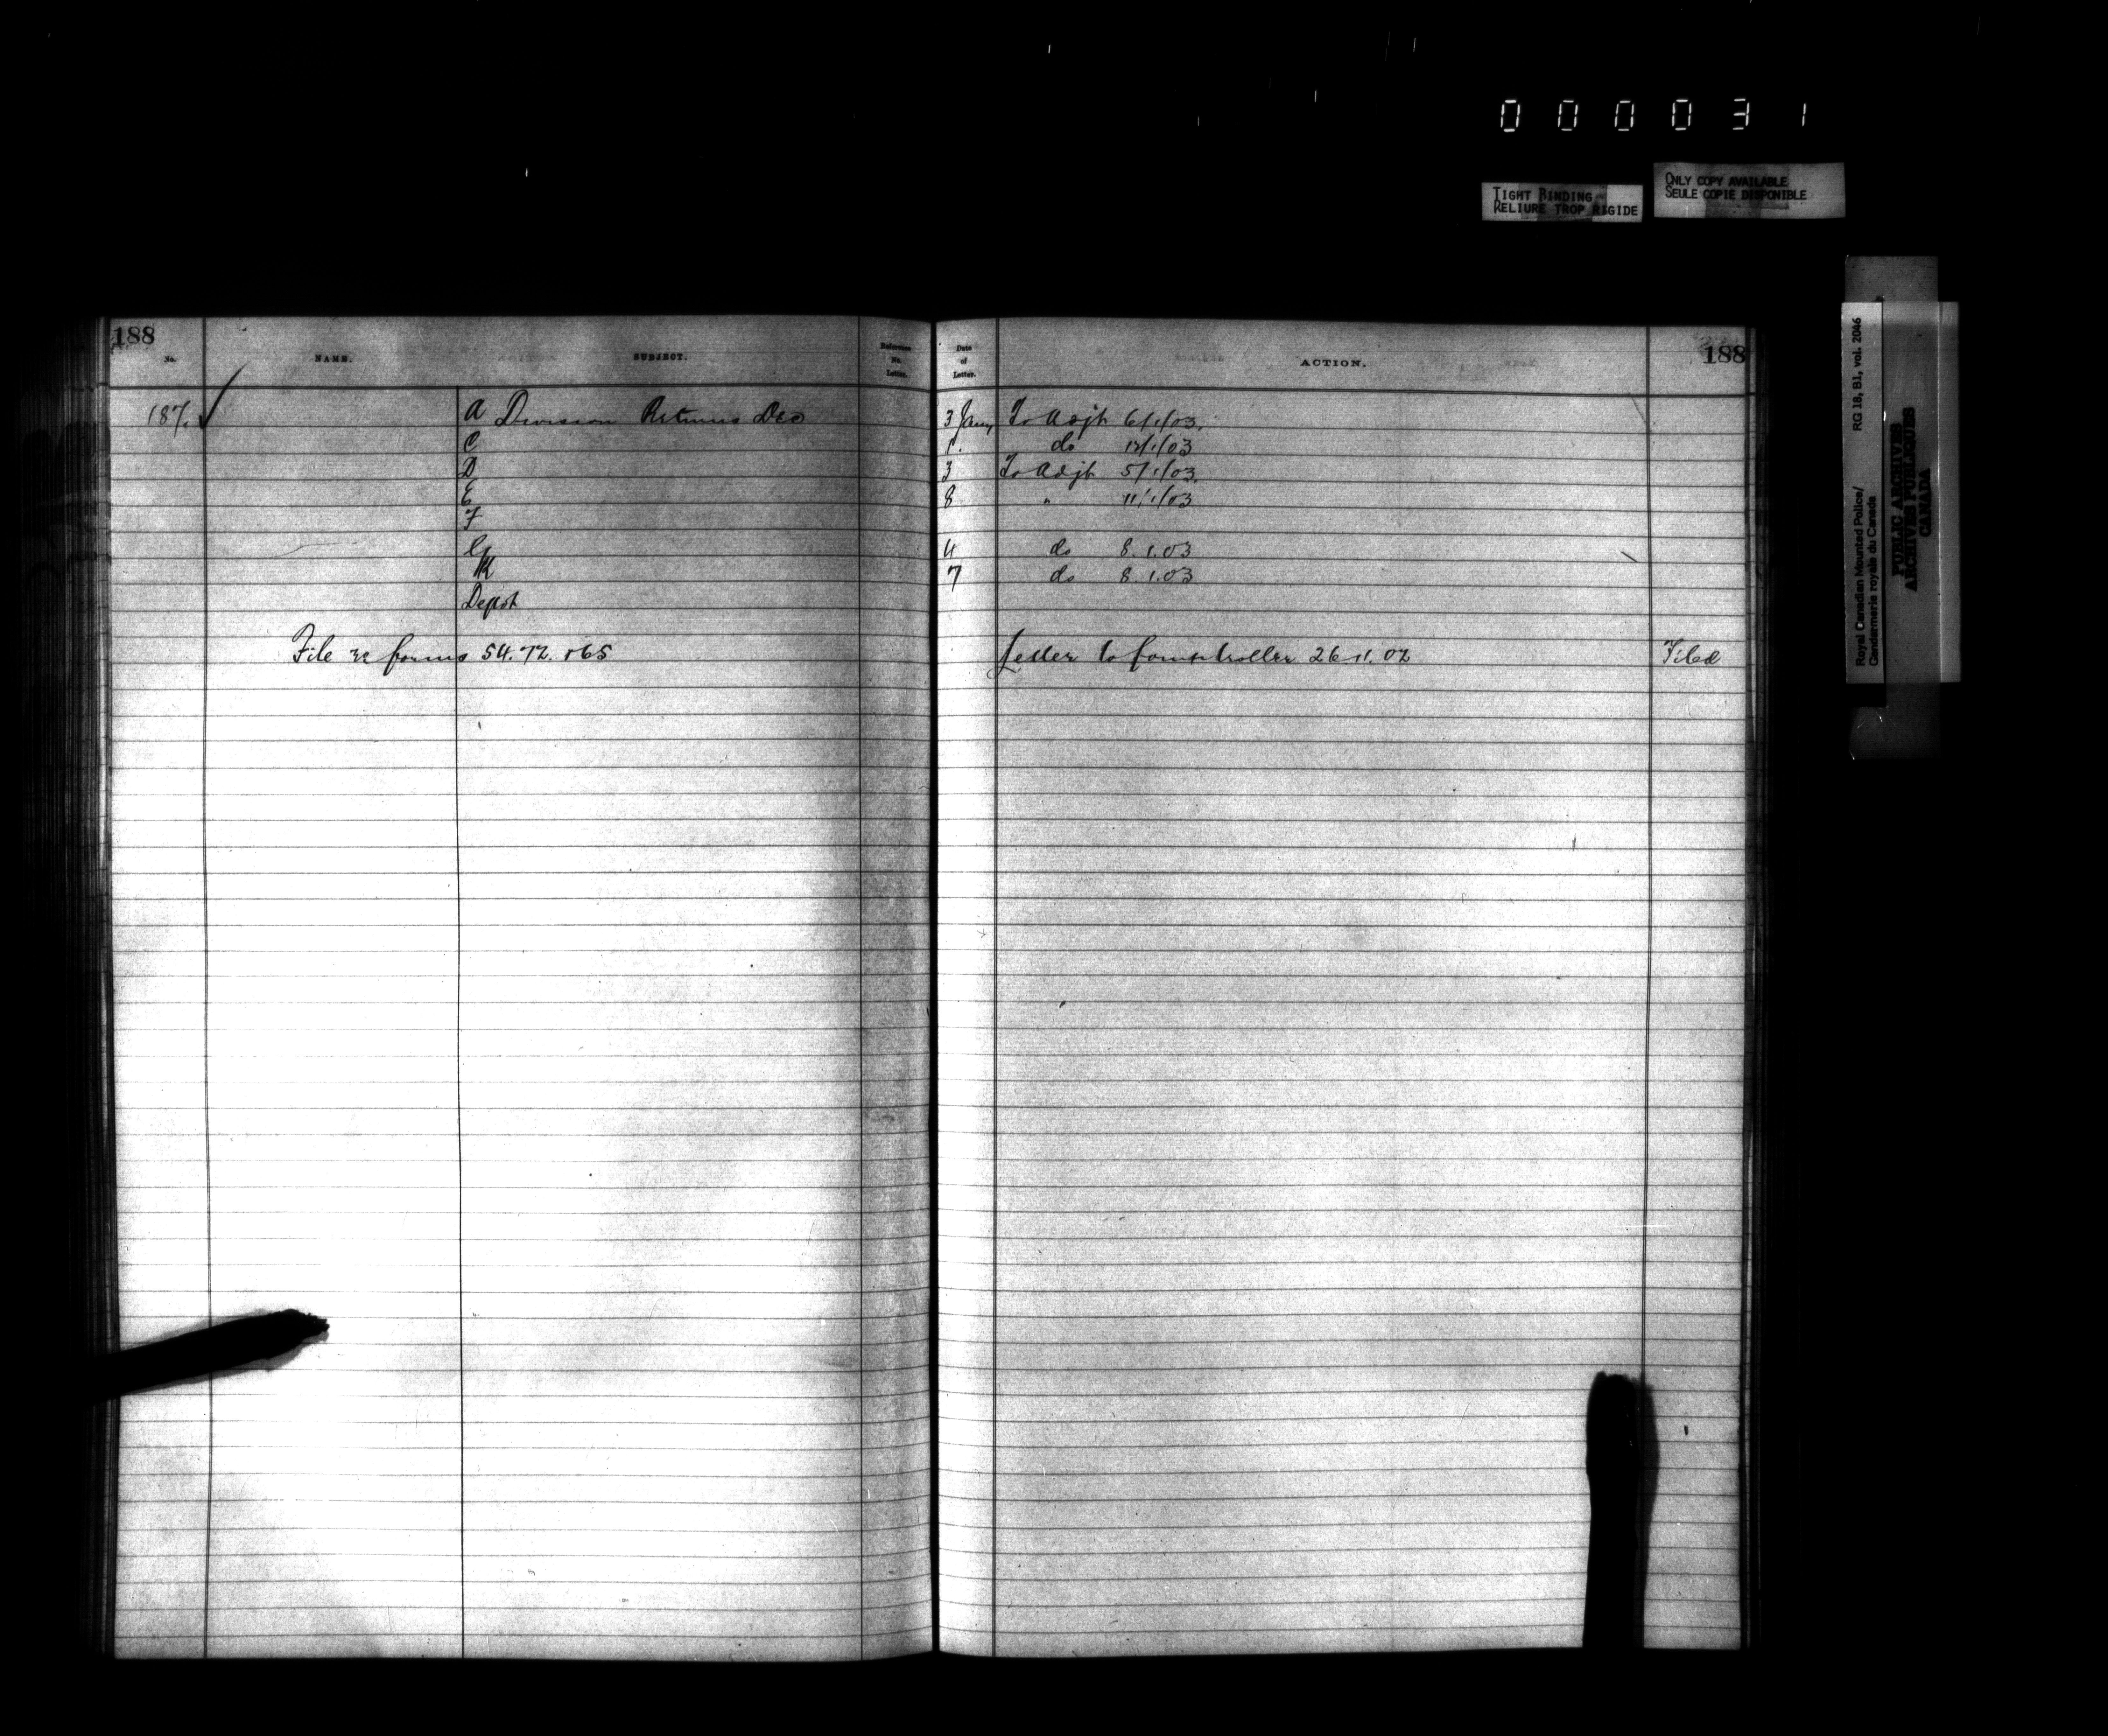 000031
TIGHT BINDING
RELIURE TROP RIGIDE
ONLY COPY AVAILABLE
SEULE COPIE DISPONIBLE
Royal Canadian Mounted Police/ RG 18, B1, vol. 2046
Gendarmerie royale du Canada
PUBLIC ARCHIVES
ARCHIVES PUBLIQUES
CANADA
188 188
No. NAME. SUBJECT. Reference No. Letter. Date of Letter. ACTION.
187. A Division Returns Dec 3 Jany To Adjt 6/1/03.
C do 12/1/03
D 3 To Adjt 5/1/03.
E 8 " 11/1/03
F
G 4 do 8.1.03
K 7 do 8.1.03
Depot
File re forms 54.72. 165 Letter to Comptroller 26.11.02 Filed